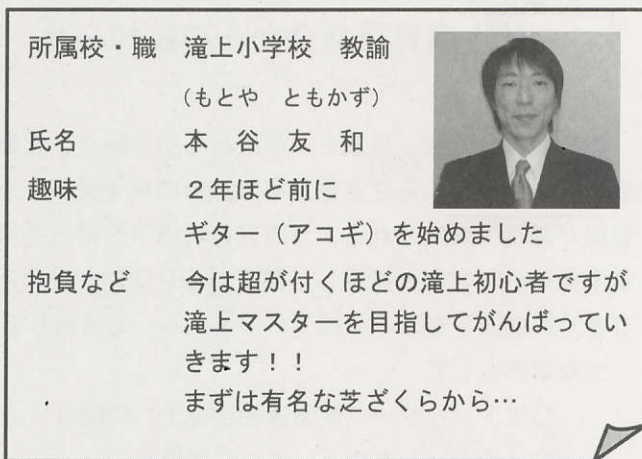 所属校・職　滝上小学校　教諭
(もとや　ともかず)
氏名　本　谷　友　和
趣味　２年ほど前に
ギター（アコギ）を始めました
抱負など　今は超が付くほどの滝上初心者ですが
滝上マスターを目指してがんばってい
きます！！
まずは有名な芝ざくらから…